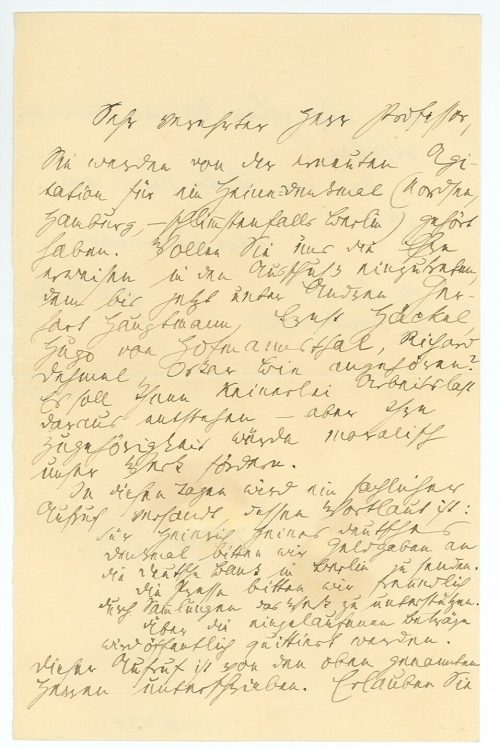 Sehr verehrter Herr Professor,
Sie werden von der erneuten Agi-
tation für ein Heine-denkmal (Nordsee,
Hamburg, – schlimstenfalls Berlin) gehört
haben. Wollen Sie uns die Ehre
erweisen in den Ausschuß einzutreten,
dem bis jetzt unter Andren Ger-
hart Hauptmann, Ernst Häckel,
Hugo von Hofmannsthal, Richard
Dehmel, Oskar Bie angehören?
Es soll Ihnen keinerlei Arbeitslast
daraus entstehen – aber Ihre
Zugehörigkeit würde moralisch
unser Werk fördern.
In diesen Tagen wird ein sachlicher
Aufruf versandt dessen Wortlaut ist:
für Heinrich Heines deutsches
denkmal bitten wir Geldgaben an
die deutsche Bank in Berlin zu senden.
die Presse bitten wir freundlich
durch Samlungen das Werk zu unterstützen.
über die eingelaufenen Beträge
wird öffentlich quittirt werden.
dieser Aufruf ist von den oben genannten
Herren unterschrieben. Erlauben Sie